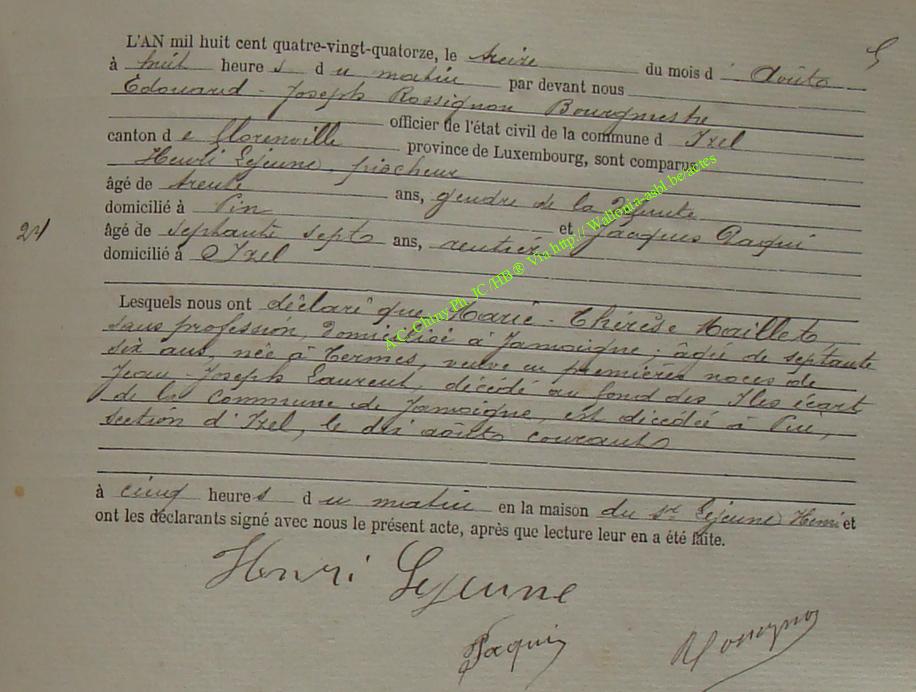 L'AN mil huit cent quatre-vingt-quatorze, le treize du mois d'Août
à huit heures du matin par devant nous
Edouard - Joseph Rossignon Bourgmestre
officier de l'état civil de la commune d'Izel
canton de Florenville province de Luxembourg, sont comparus
Henri Lejeune, piocheur
âgé de trente ans, gendre de la défunte
domicilié à Pin et Jacques Paquin
âgé de septante sept ans, rentier
domicilié à Izel
24
Lesquels nous ont déclaré que Marie - Thérèse Maillet
sans profession, domiciliée à Jamoigne, âgée de septante
six ans, née à Termes, veuve en premières noces de
Jean - Joseph Laurent, décédé au fond des Iles écart
de la commune de Jamoigne, est décédée à Pin,
section d'Izel, le dix août courant
à cinq heures du matin en la maison du sr Lejeune Henri et
ont les déclarants signé avec nous le présent acte, après que lecture leur en a été faite.
Henri Lejeune
Paquin
Rossignon
A.C. Chiny Ph. JC/HB® Via http://Wallonia-asbl.be/actes